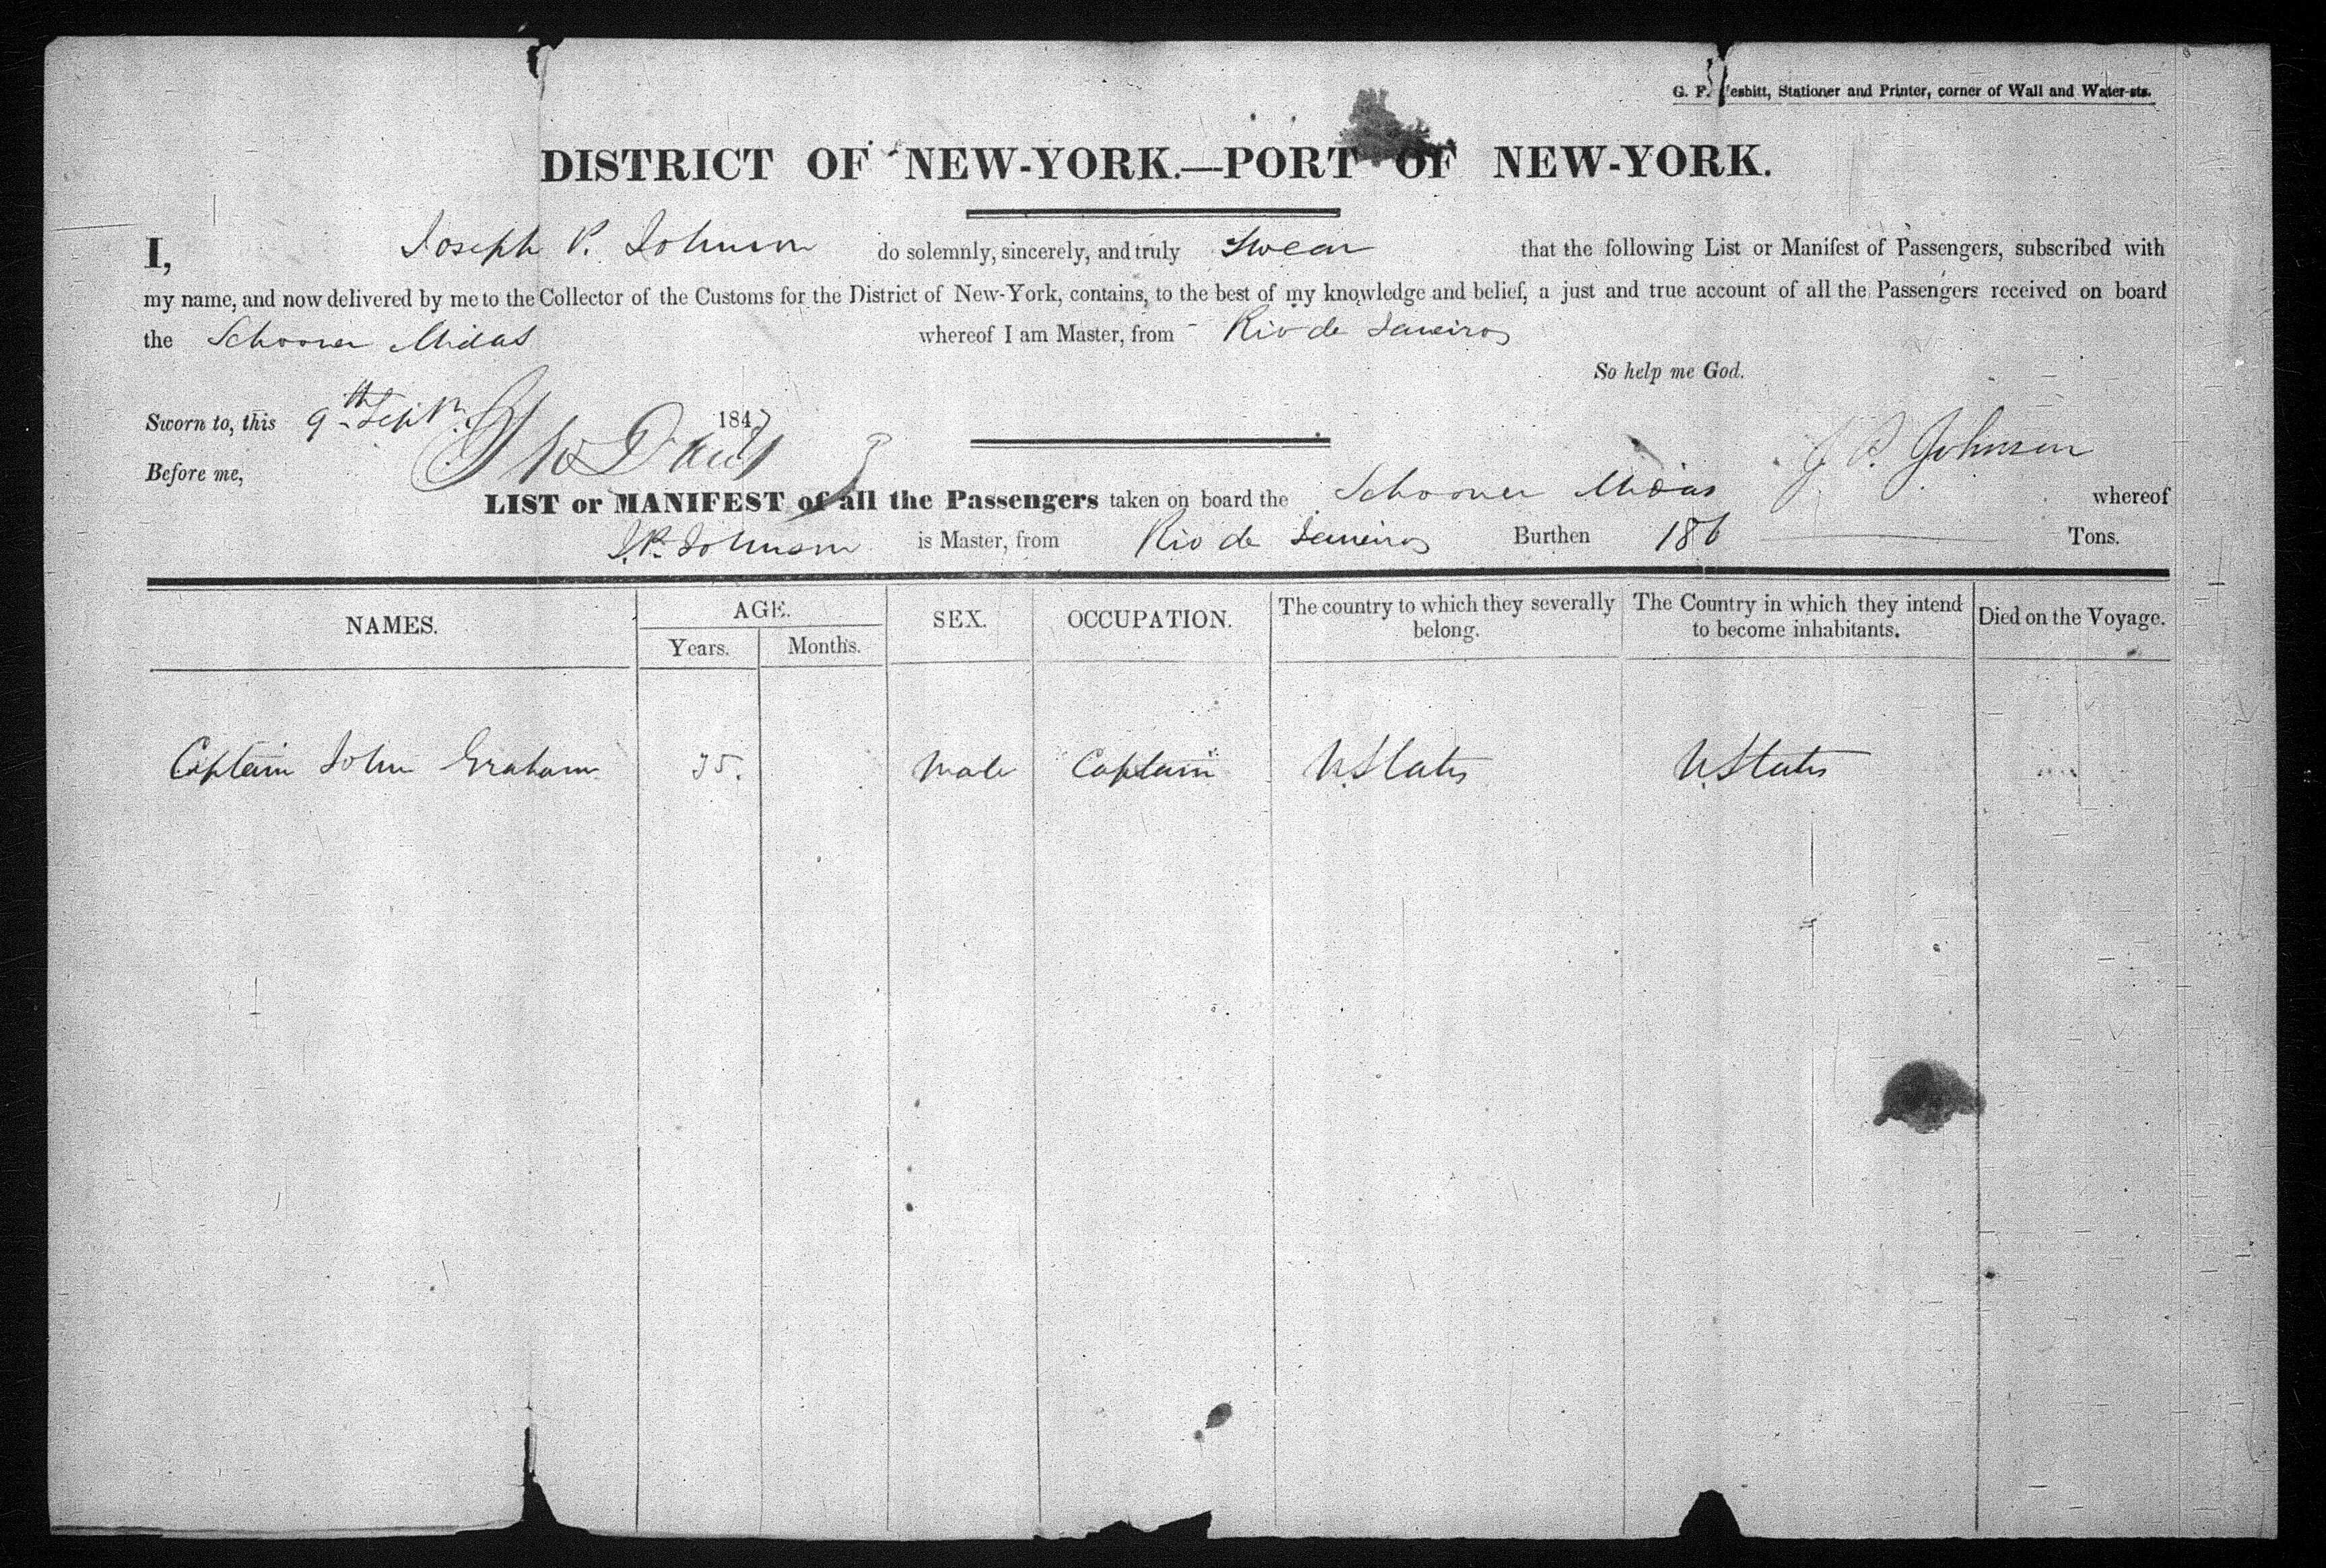 G. F. Nesbitt, Stationer and Printer, corner of Wall and Water-sts.
DISTRICT OF NEW-YORK.—PORT OF NEW-YORK.
I, Joseph P. Johnson do solemnly, sincerely, and truly Swear that the following List or Manifest of Passengers, subscribed with
my name, and now delivered by me to the Collector of the Customs for the District of New-York, contains, to the best of my knowledge and belief, a just and true account of all the Passengers received on board
the Schooner Midas whereof I am Master, from Rio de Janeiro
So help me God.
Sworn to, this 9th Sept. 1847
J P. Johnson
Before me,
LIST or MANIFEST of all the Passengers taken on board the Schooner Midas whereof
J.P. Johnson is Master, from Rio de Janeiro Burthen 186 Tons.
NAMES. AGE. SEX. OCCUPATION. The country to which they severally belong. The Country in which they intend to become inhabitants. Died on the Voyage.
Years. Months.
Captain John Graham 35. Male Captain U. States U. States